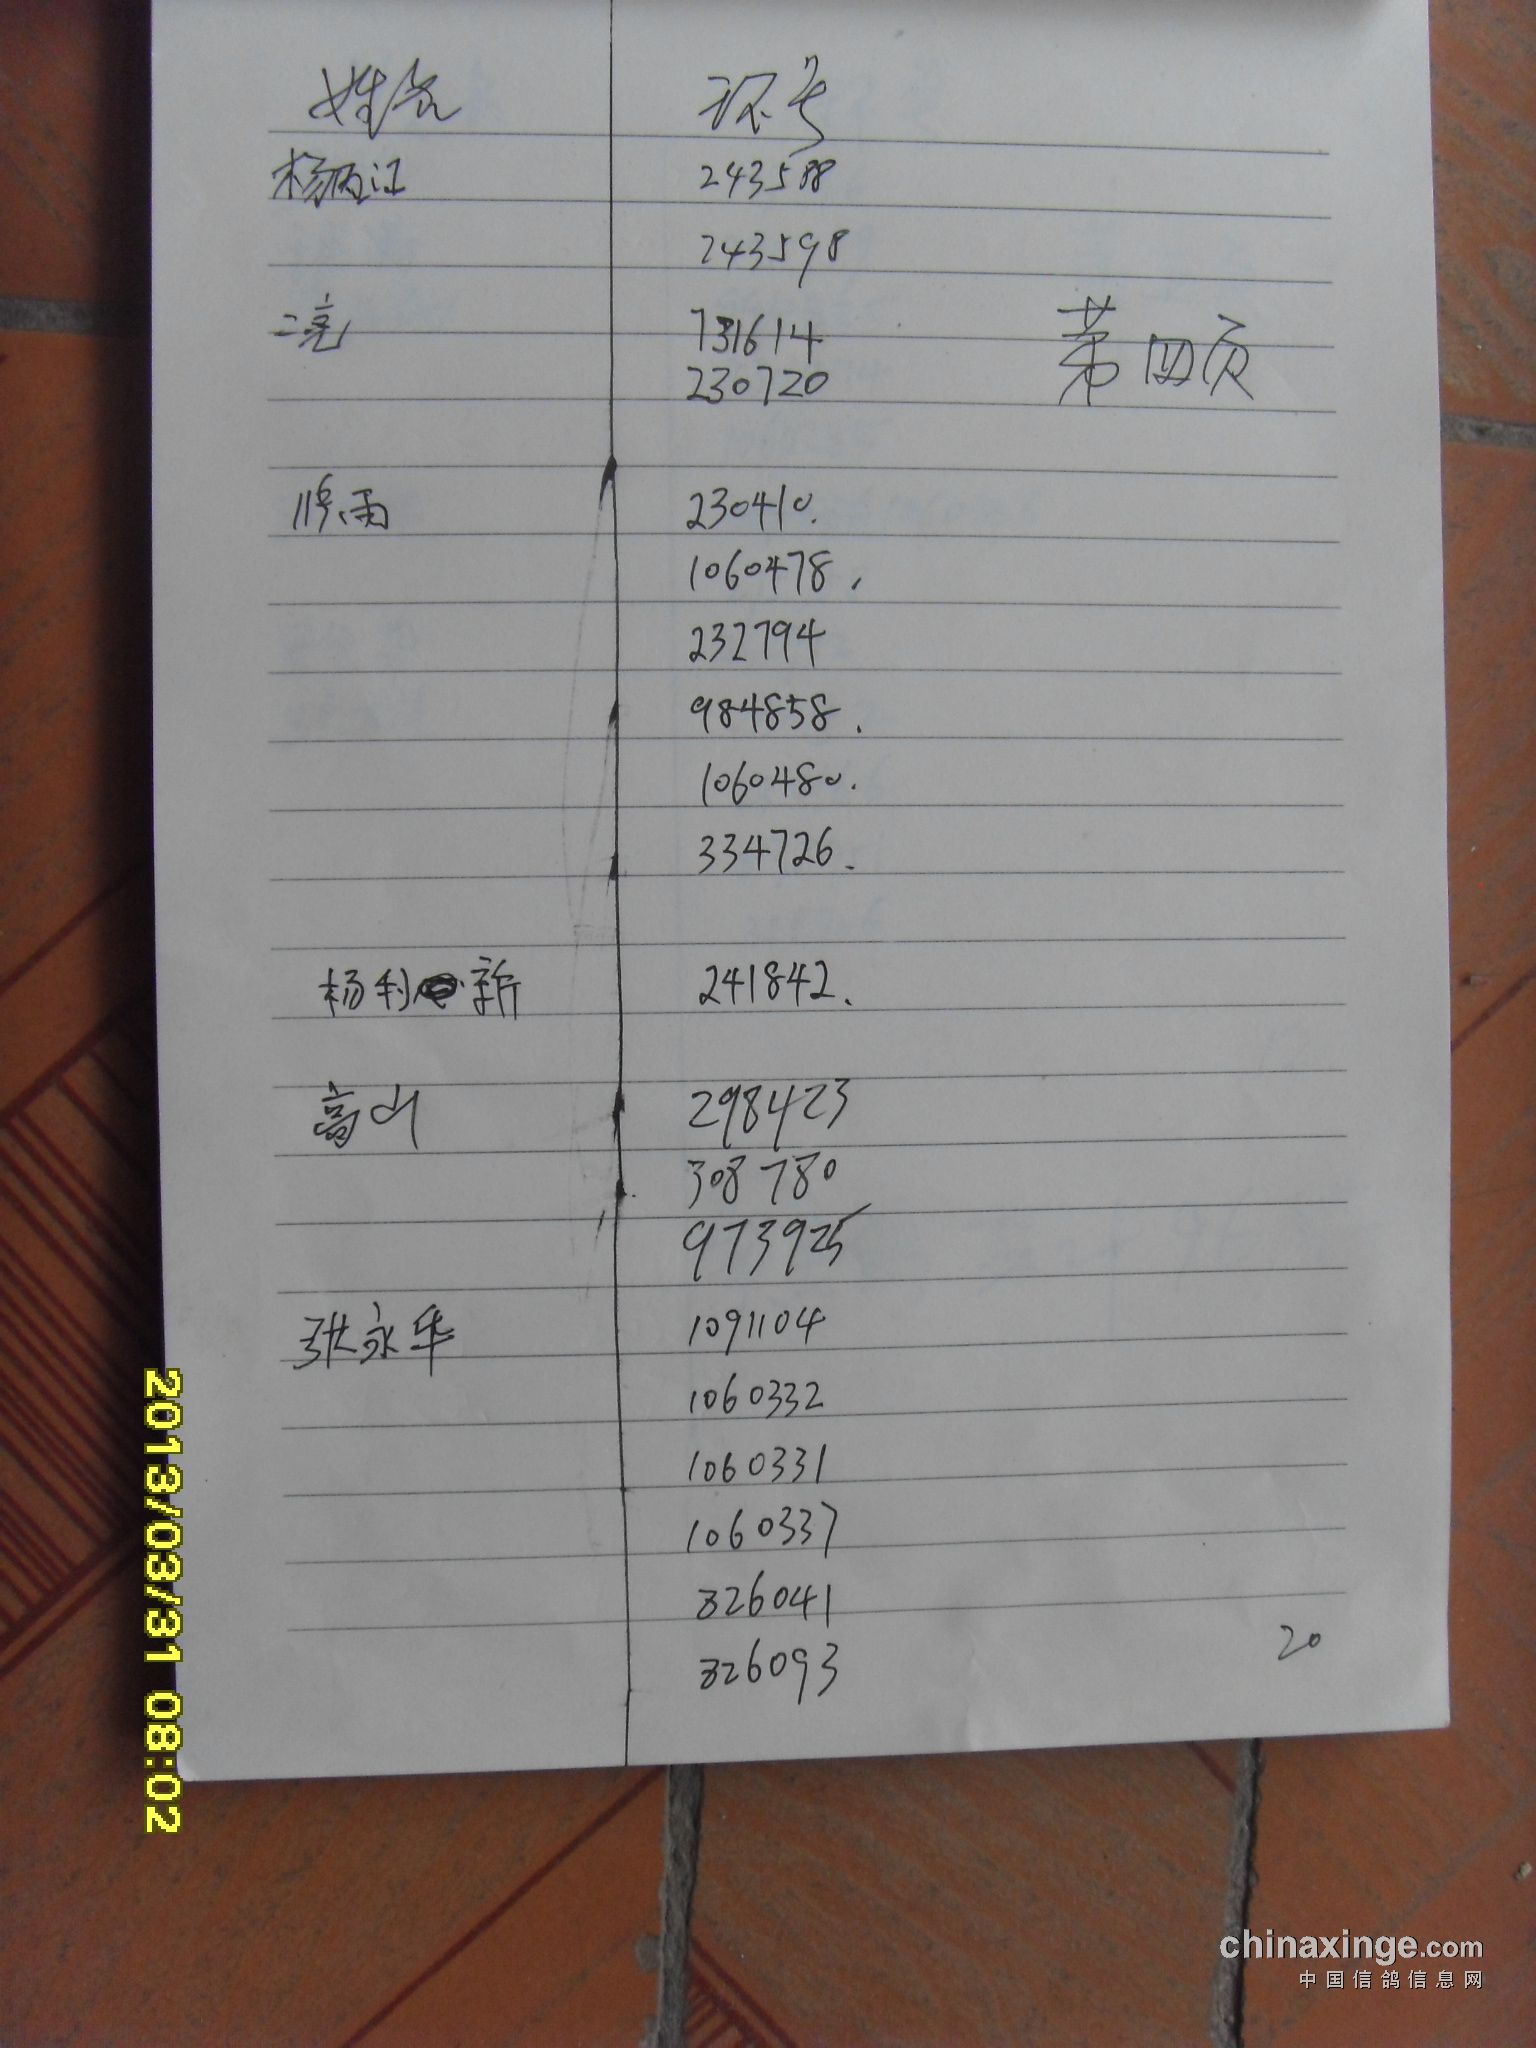 姓名 环号
杨丙江 243588
243598
二亮 731614
230720
第四页
230410.
1060478.
232794
984858.
1060480.
334726.
杨利新 241842.
高山 298423
308780
973925
张永华 1091104
1060332
1060331
1060337
326041
326093
20
2013/03/31 08:02
chinaxinge.com
中国信鸽信息网